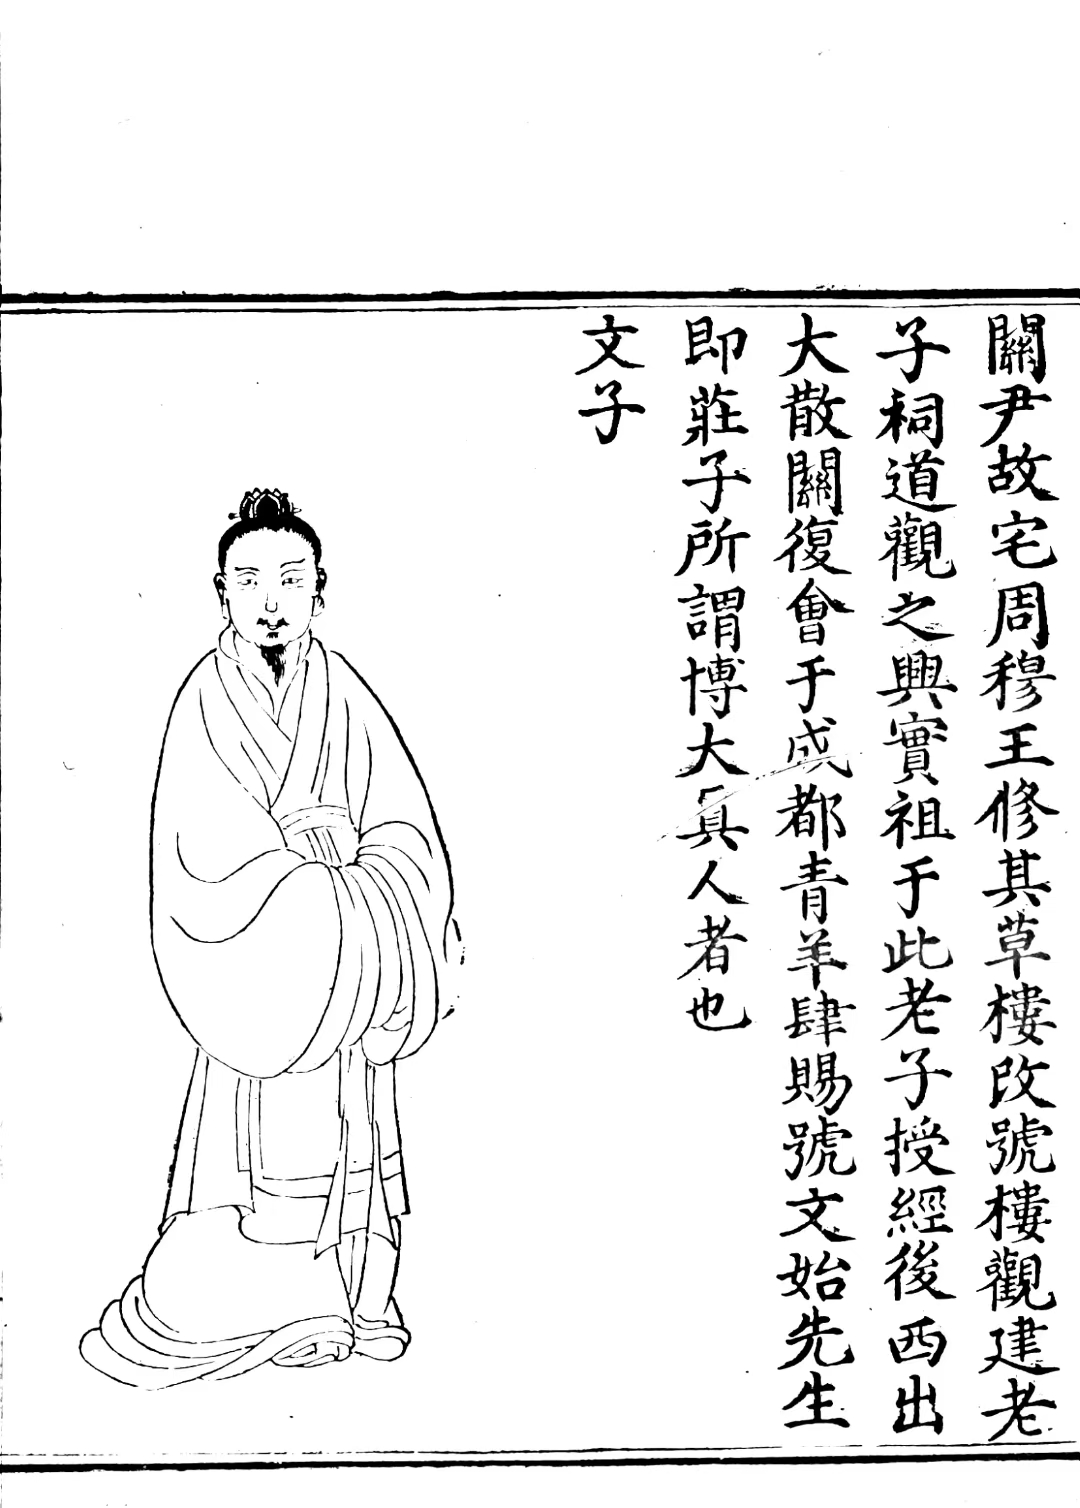 關尹故宅周穆王修其草樓改號樓觀建老
子祠道觀之興實祖于此老子授經後西出
大散關復會于成都青羊肆賜號文始先生
即莊子所謂博大真人者也
文子